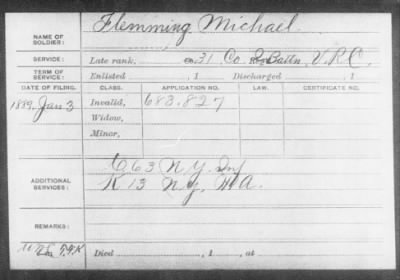 NAME OF SOLDIER: Flemming Michael
SERVICE: Late rank, 31 Co 2 Battn, V.R.C.
TERM OF SERVICE: Enlisted , 1 Discharged , 1
DATE OF FILING. CLASS. APPLICATION NO. LAW. CERTIFICATE NO.
1889, Jan 3 Invalid, 683.827
Widow,
Minor,
ADDITIONAL SERVICES: C 63 N.Y. Inf
K 13 N.Y. H A.
REMARKS:
Died , 1 , at